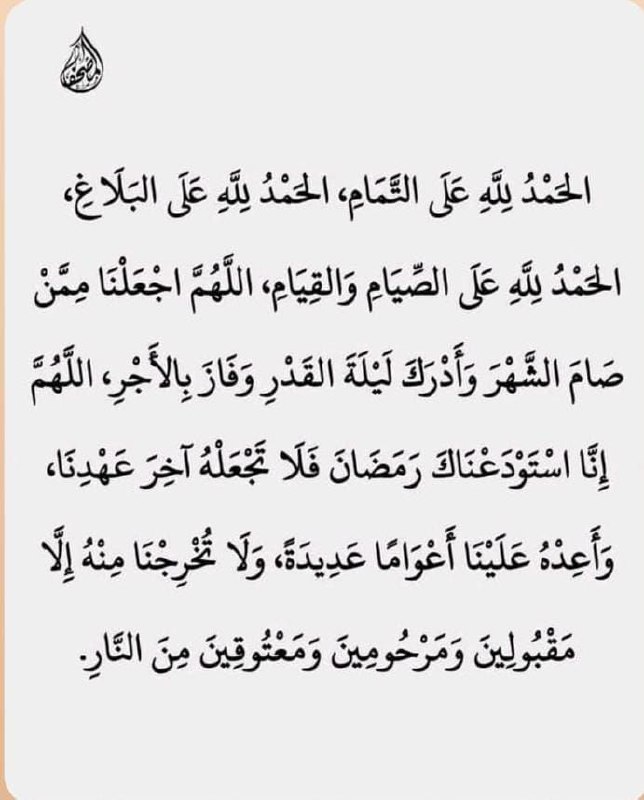 الحَمْدُ لِلَّهِ عَلَى التَّمَامِ، الحَمْدُ لِلَّهِ عَلَى البَلَاغِ،
الحَمْدُ لِلَّهِ عَلَى الصِّيَامِ وَالقِيَامِ، اللَّهُمَّ اجْعَلْنَا مِمَّنْ
صَامَ الشَّهْرَ وَأَدْرَكَ لَيْلَةَ القَدْرِ وَفَازَ بِالأَجْرِ، اللَّهُمَّ
إِنَّا اسْتَوْدَعْنَاكَ رَمَضَانَ فَلَا تَجْعَلْهُ آخِرَ عَهْدِنَا،
وَأَعِدْهُ عَلَيْنَا أَعْوَامًا عَدِيدَةً، وَلَا تُخْرِجْنَا مِنْهُ إِلَّا
مَقْبُولِينَ وَمَرْحُومِينَ وَمَعْتُوقِينَ مِنَ النَّارِ.